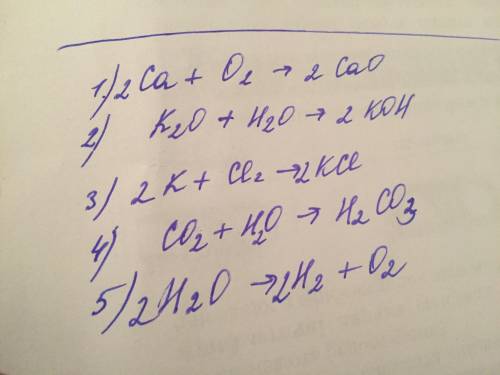 1) 2Ca + O2 → 2CaO
2) K2O + H2O → 2KOH
3) 2K + Cl2 → 2KCl
4) CO2 + H2O → H2CO3
5) 2H2O → 2H2 + O2